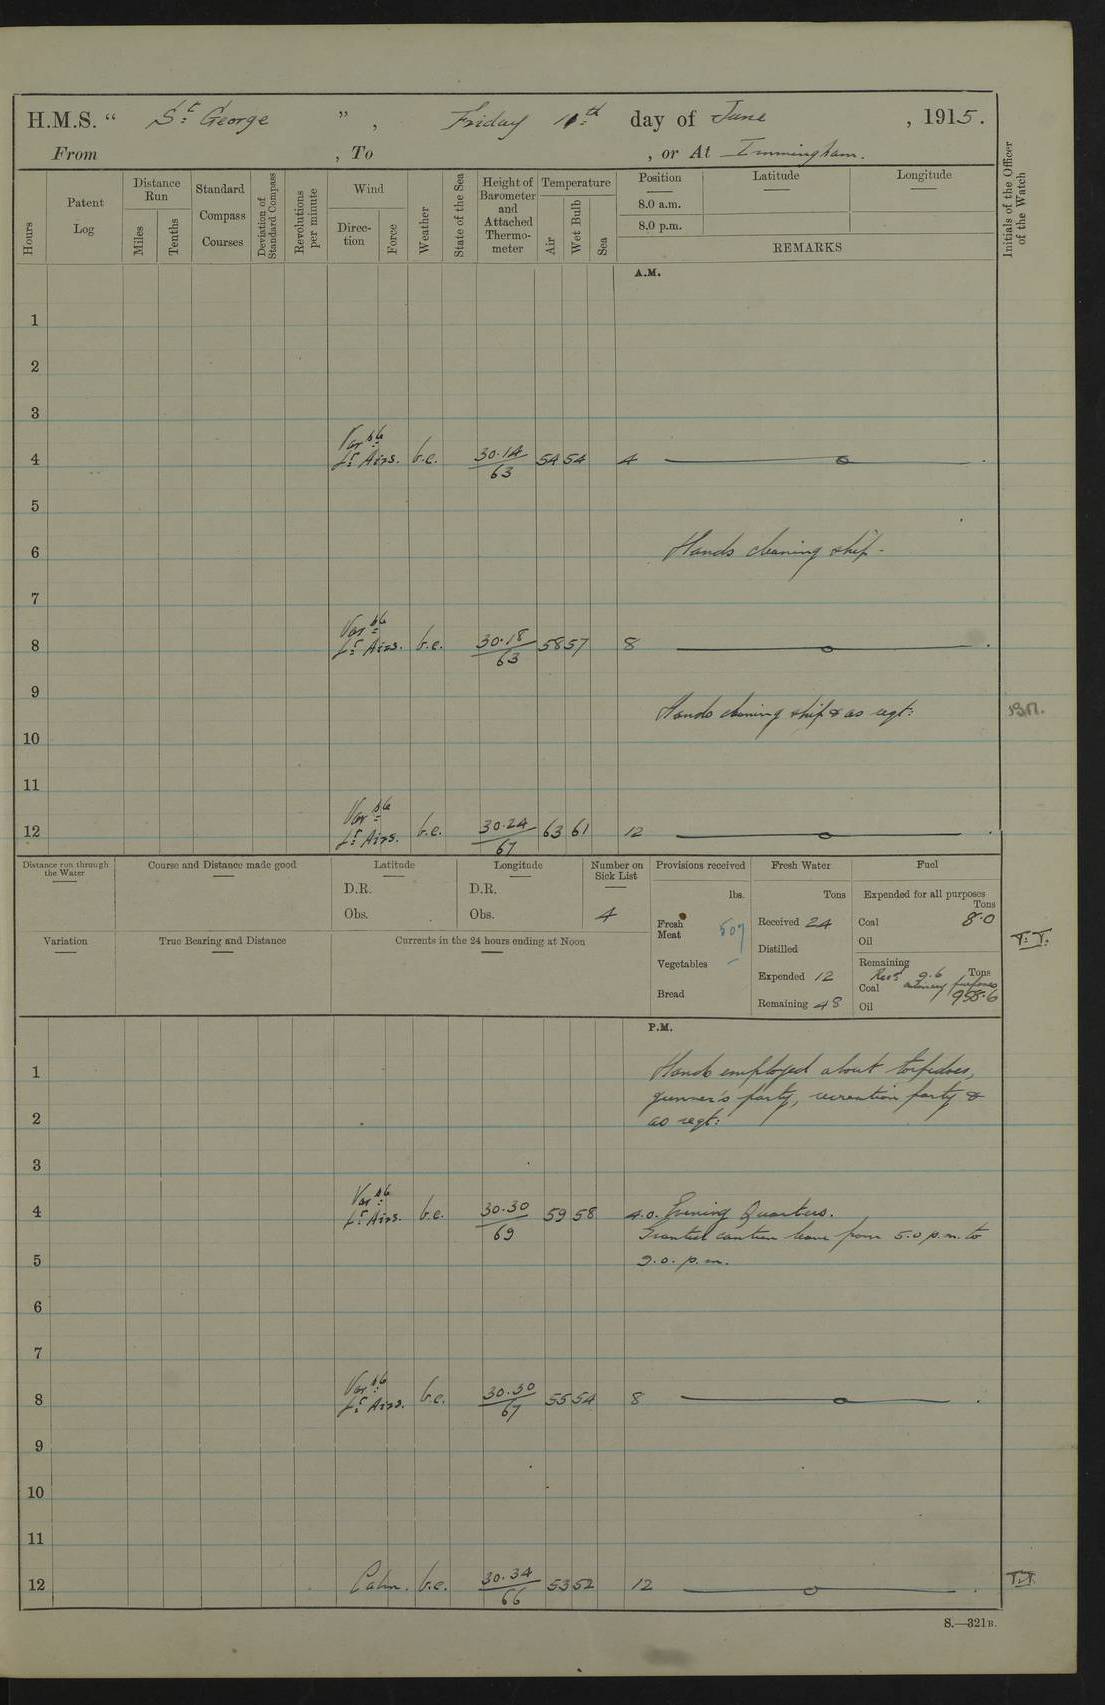 H.M.S. “ St. George ” , Friday 11th day of June , 1915.
From , To , or At Immingham.
Hours
Patent Log
Distance Run
Miles
Tenths
Standard Compass Courses
Deviation of Standard Compass
Revolutions per minute
Wind
Direc-tion
Force
Weather
State of the Sea
Height of Barometer and Attached Thermo-meter
Temperature
Air
Wet Bulb
Sea
Position
8.0 a.m.
8.0 p.m.
Latitude
Longitude
REMARKS
Initials of the Officer of the Watch
A.M.
1
2
3
Var ble
4 Lt Airs. b.c. 30.14/63 54 54 4
5
6 Hands cleaning ship.
7
Var ble
8 Lt Airs. b.c. 30.18/63 58 57 8
9
Hands cleaning ship & as reqt:
10
11
Var ble
12 Lt Airs. b.c. 30.24/67 63 61 12
Distance run through the Water
Course and Distance made good
Latitude
D.R.
Obs.
Longitude
D.R.
Obs.
Number on Sick List
4
Variation
True Bearing and Distance
Currents in the 24 hours ending at Noon
Provisions received
lbs.
Fresh Meat 507
Vegetables
Bread
Fresh Water
Tons
Received 24
Distilled
Expended 12
Remaining 48
Fuel
Expended for all purposes
Tons
Coal 8.0
Oil
Remaining
Tons
Recd 9.6
purposes
Coal 958.6
Oil
T.T.
P.M.
1 Hands employed about torpedoes,
gunner's party, recreation party &
2 as reqt:
3
Var ble
4 Lt Airs. b.c. 30.30/69 59 58 4.0. Evening Quarters.
Granted canteen leave from 5.0 p.m. to
5 9.0. p.m.
6
7
Var ble
8 Lt Airs. b.c. 30.30/67 55 54 8
9
10
11
12 Calm. b.c. 30.34/66 53 52 12
T.T.
S.—321B.